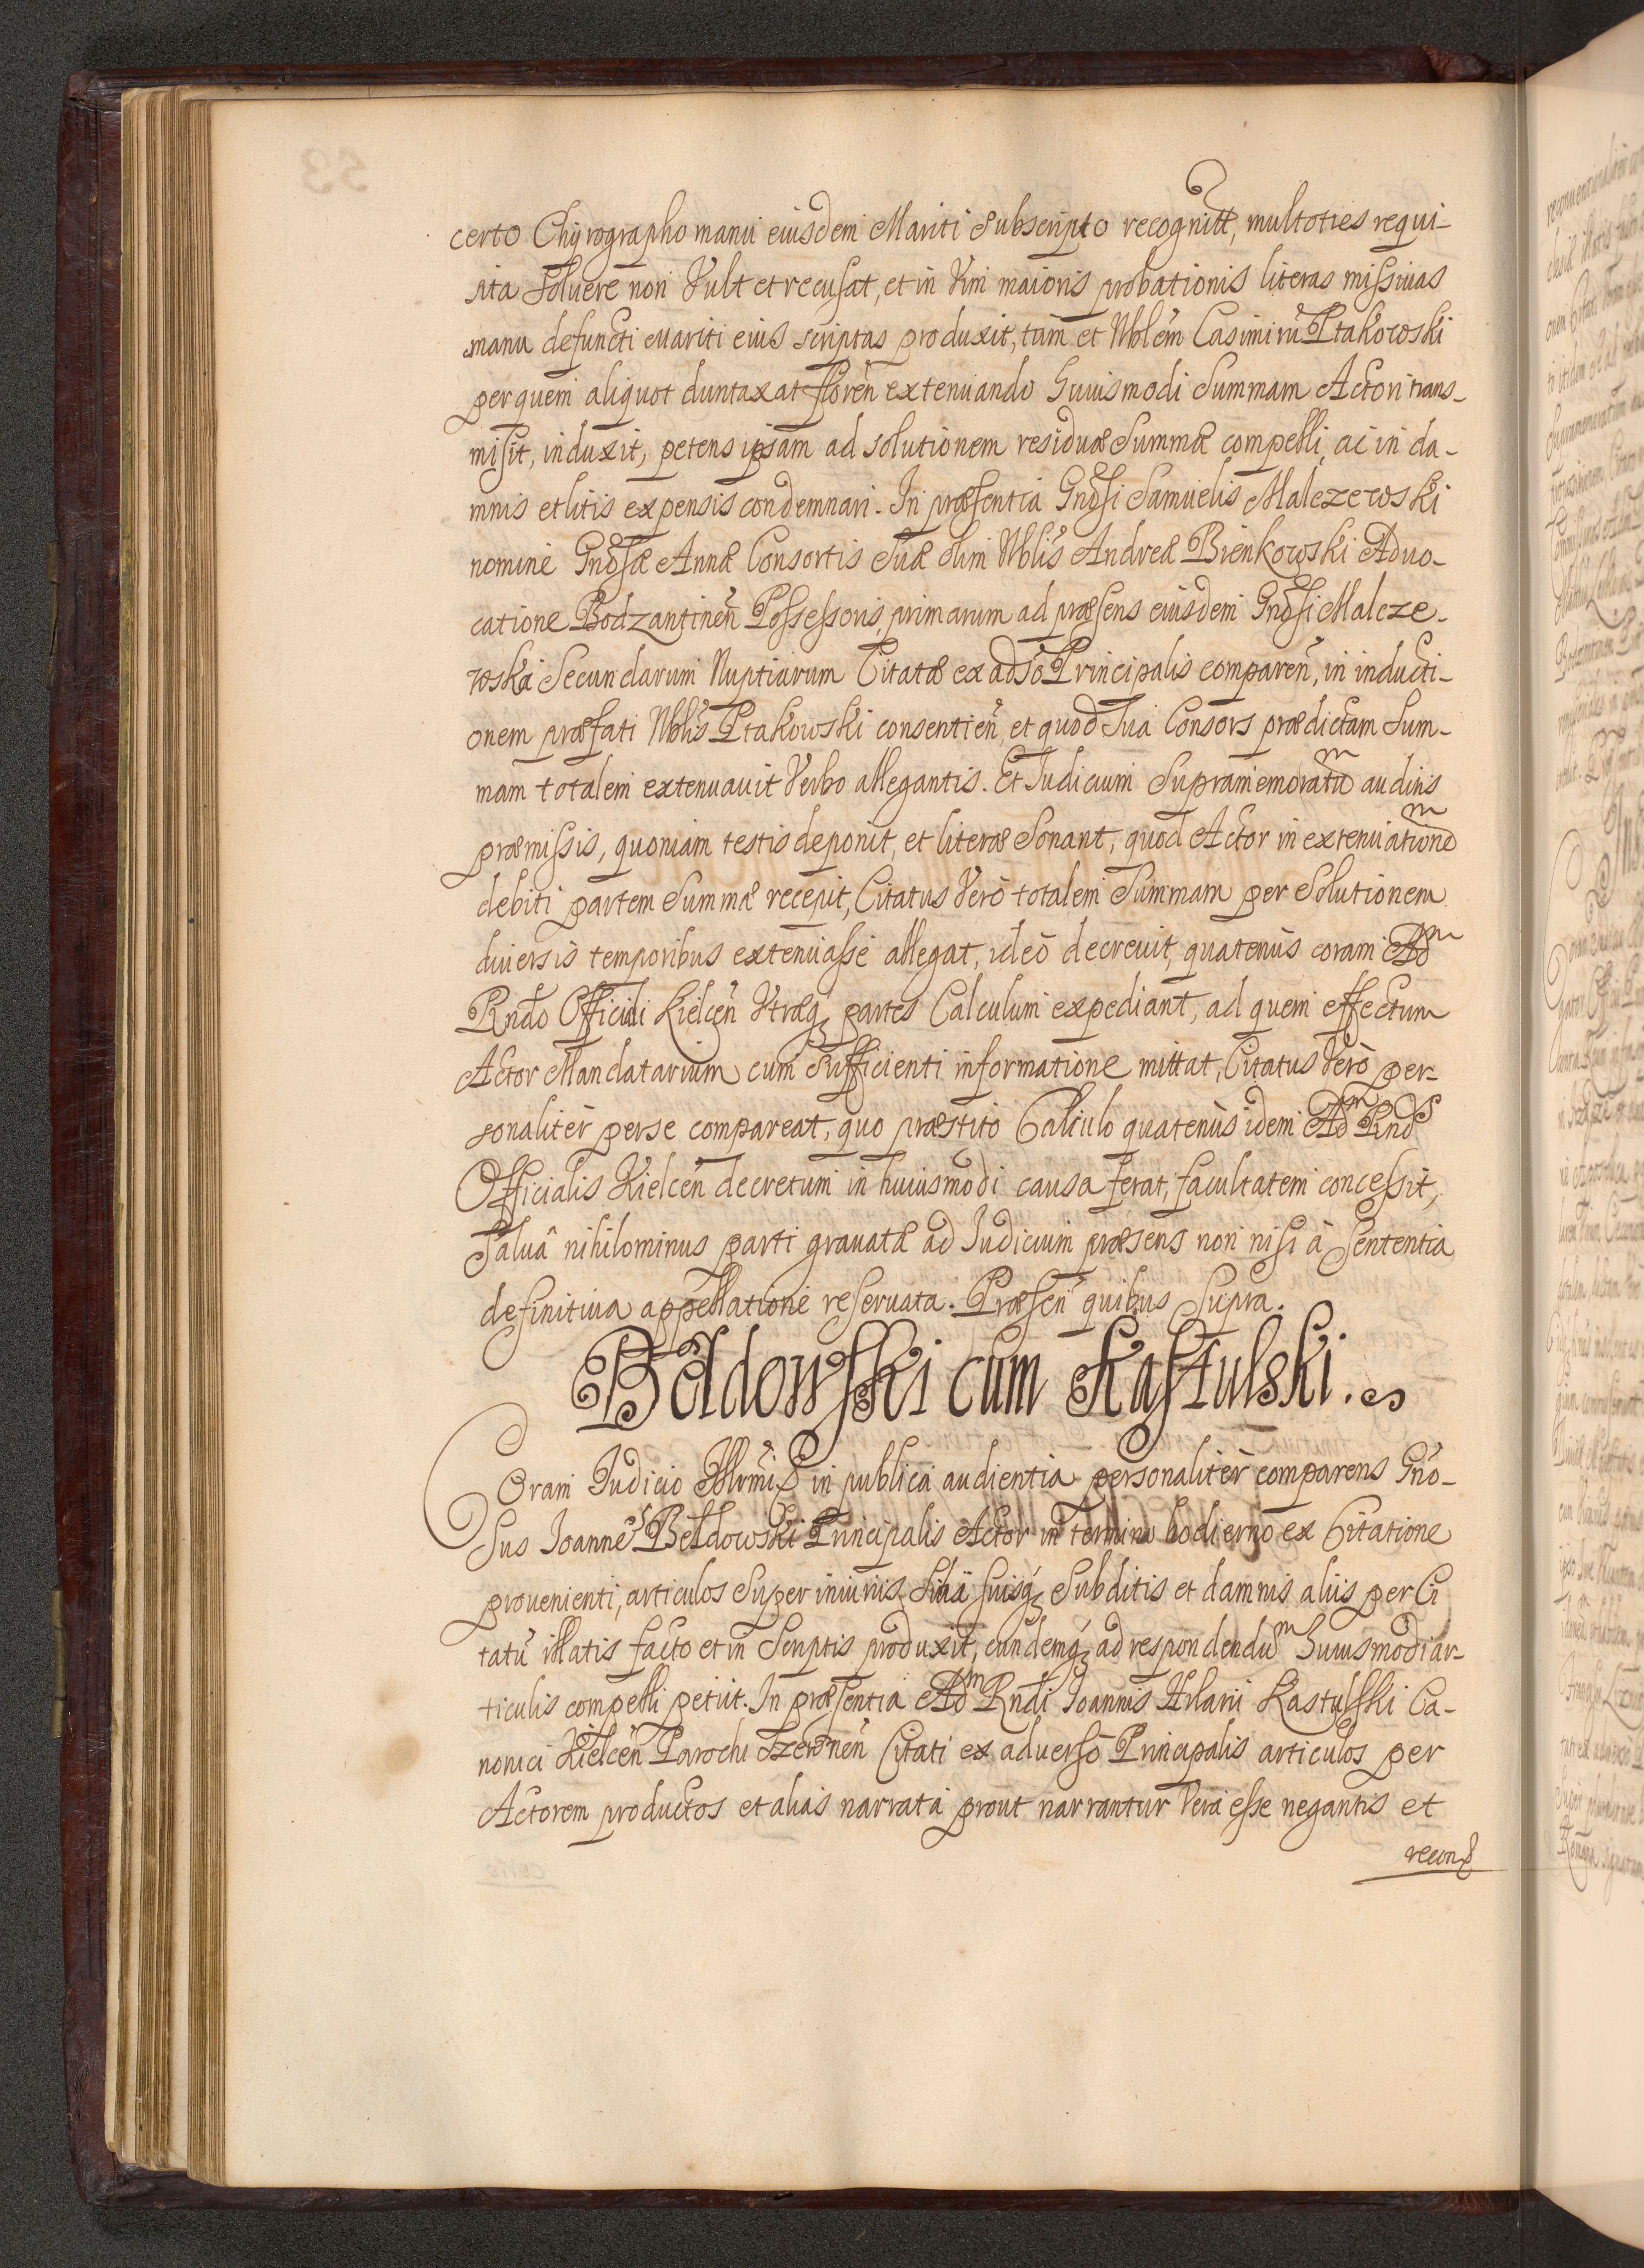 certo Chÿrographo manu eiusdem Mariti Subscripto recognitæ, multoties requi-
sita soluere non Vult et recusat, et in Vim maioris probationis literas missiuas
manu defuncti Mariti eius scriptas produxit, tum et Nblem Casimirū Ptakowski
per quem aliquot duntaxat floren̄ extenuando Huiusmodi Summam Actori trans-
misit, induxit, petens ipsam ad solutionem residuæ Summæ compelli, ac in da-
mnis et litis expensis condemnari. In præsentia Gnōsi Samuelis Malczewski
nomine Gnōsæ Annæ Consortis Suæ olim Nblis Andreæ Bienkowski Aduo-
catione Bodzantinen̄ Possessoris, primarum ad præsens eiusdem Gnōsi Malcze-
wski Secundarum Nuptiarum Citatæ ex adsō Principalis comparen̄, in inducti-
onem præfati Nblis Ptakowski consentien̄, et quod Sua Consors prædictam Sum-
mam totalem extenuauit Verbo allegantis. Et Iudicium Supramemoratū auditis
præmissis, quoniam testis deponit, et literæ Sonant, quod Actor in extenuatione
debiti partem Summæ recepit, Citatus Verò totalem Summam per Solutionem
diuersis temporibus extenuasse allegat, ideò decreuit, quatenùs coram Adm
Rndō Officiali Kielcen̄ Vtræq3 partes Calculum expediant, ad quem effectum
Actor Mandatarium cum Sufficienti informatione mittat, Citatus Verò per-
sonalitèr per se compareat, quo præstito Calculo quatenùs idem Adm Rnds
Officialis Kielcen̄ decretum in huiusmodi causa ferat, facultatem concessit,
Saluâ nihilominus parti grauatæ ad Iudicium præsens non nisi à Sententia
definitiua appellatione reseruata. Præsen̄ quibus Supra.
Bełdowski cum Kastulski.
Coram Iudicio Illrmi in publica audientia personalitèr comparens Gnō-
sus Ioannes Bełdowski Principalis Actor in termino hodierno ex Citatione
prouenienti, articulos Super iniurijs Sibi suisq3 Subditis et damnis alijs per Ci
tatū illatis facto et in Scriptis produxit, eundemq3 ad respondendū Huiusmodi ar-
ticulis compelli petijt. In præsentia Adm Rndi Ioannis Hilarii Kastulski Ca-
nonici Kielcen̄ Parochi Citati ex aduerso Principalis articulos per
Actorem productos et alias narrata prout narrantur Vera esse negantis et
recon